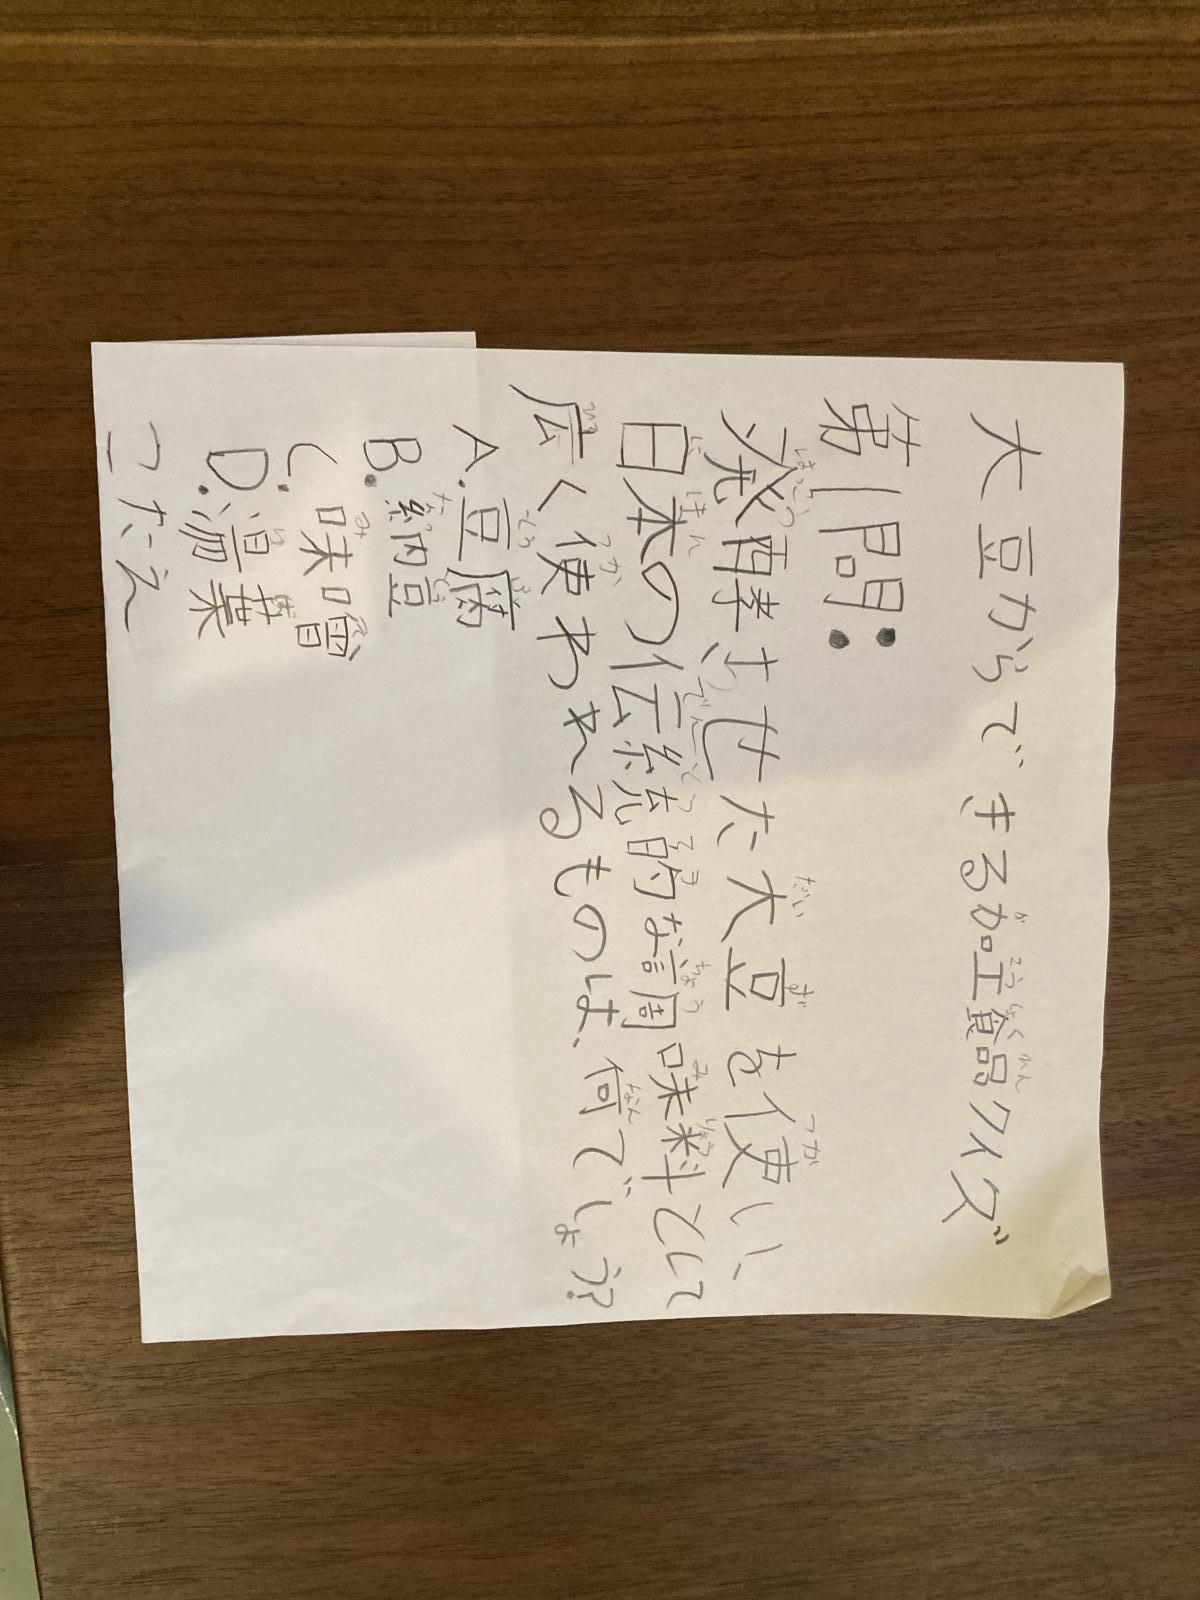 大豆からできる加工食品クイズ
第1問:
発酵させた大豆を使い、
日本の伝統的な調味料として
広く使われるものは、何でしょう?
A. 豆腐
B. 納豆
C. 味噌
D. 湯葉
こたえ